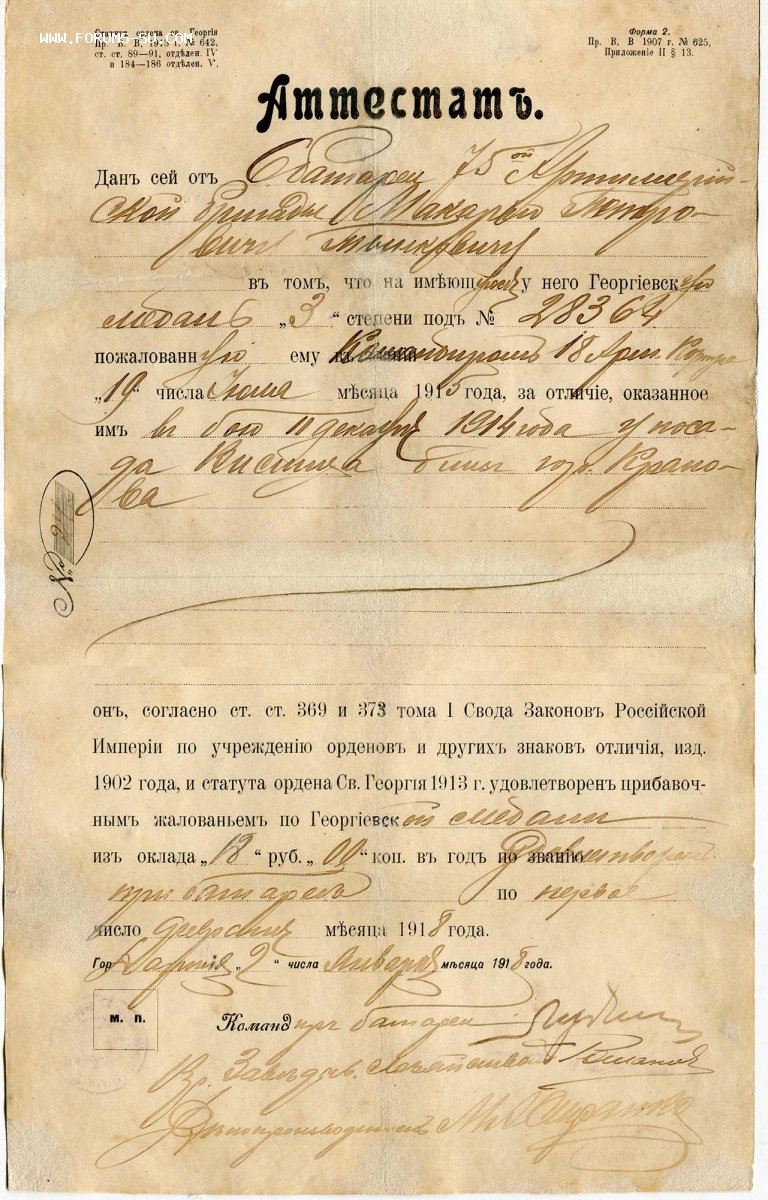 WWW.FORUMS-SU.COM
Георгія
Пр. В. В. 1913 г. № 642,
ст. ст. 89—91, отдѣлен. IV
и 184—186 отдѣлен. V.
Форма 2.
Пр. В. В 1907 г. № 625,
Приложеніе II § 13.
Аттестатъ.
Данъ сей отъ батареи 75ой Артиллерій-
ской бригады Макарью Петро-
вичу
въ томъ, что на имѣющуюся у него Георгіевскую
медаль „3“ степени подъ № 28364
пожалованную ему Командиромъ 18 Арм. Корпуса
„19“ числа Іюля мѣсяца 1915 года, за отличіе, оказанное
имъ въ бою 11 декабря 1914 года у поса-
да близъ гор. Крако-
ва
№
онъ, согласно ст. ст. 369 и 373 тома I Свода Законовъ Россійской
Имперіи по учрежденію орденовъ и другихъ знаковъ отличія, изд.
1902 года, и статута ордена Св. Георгія 1913 г. удовлетворенъ прибавоч-
нымъ жалованьемъ по Георгіевской медали
изъ оклада „18“ руб. „00“ коп. въ годъ по званію удовлетворенъ
при батареѣ по первое
число февраля мѣсяца 1918 года.
Гор „2“ числа Января мѣсяца 1918 года.
М. П.
Командиръ батареи
Вр. Завѣд.
Дѣлопроизводитель